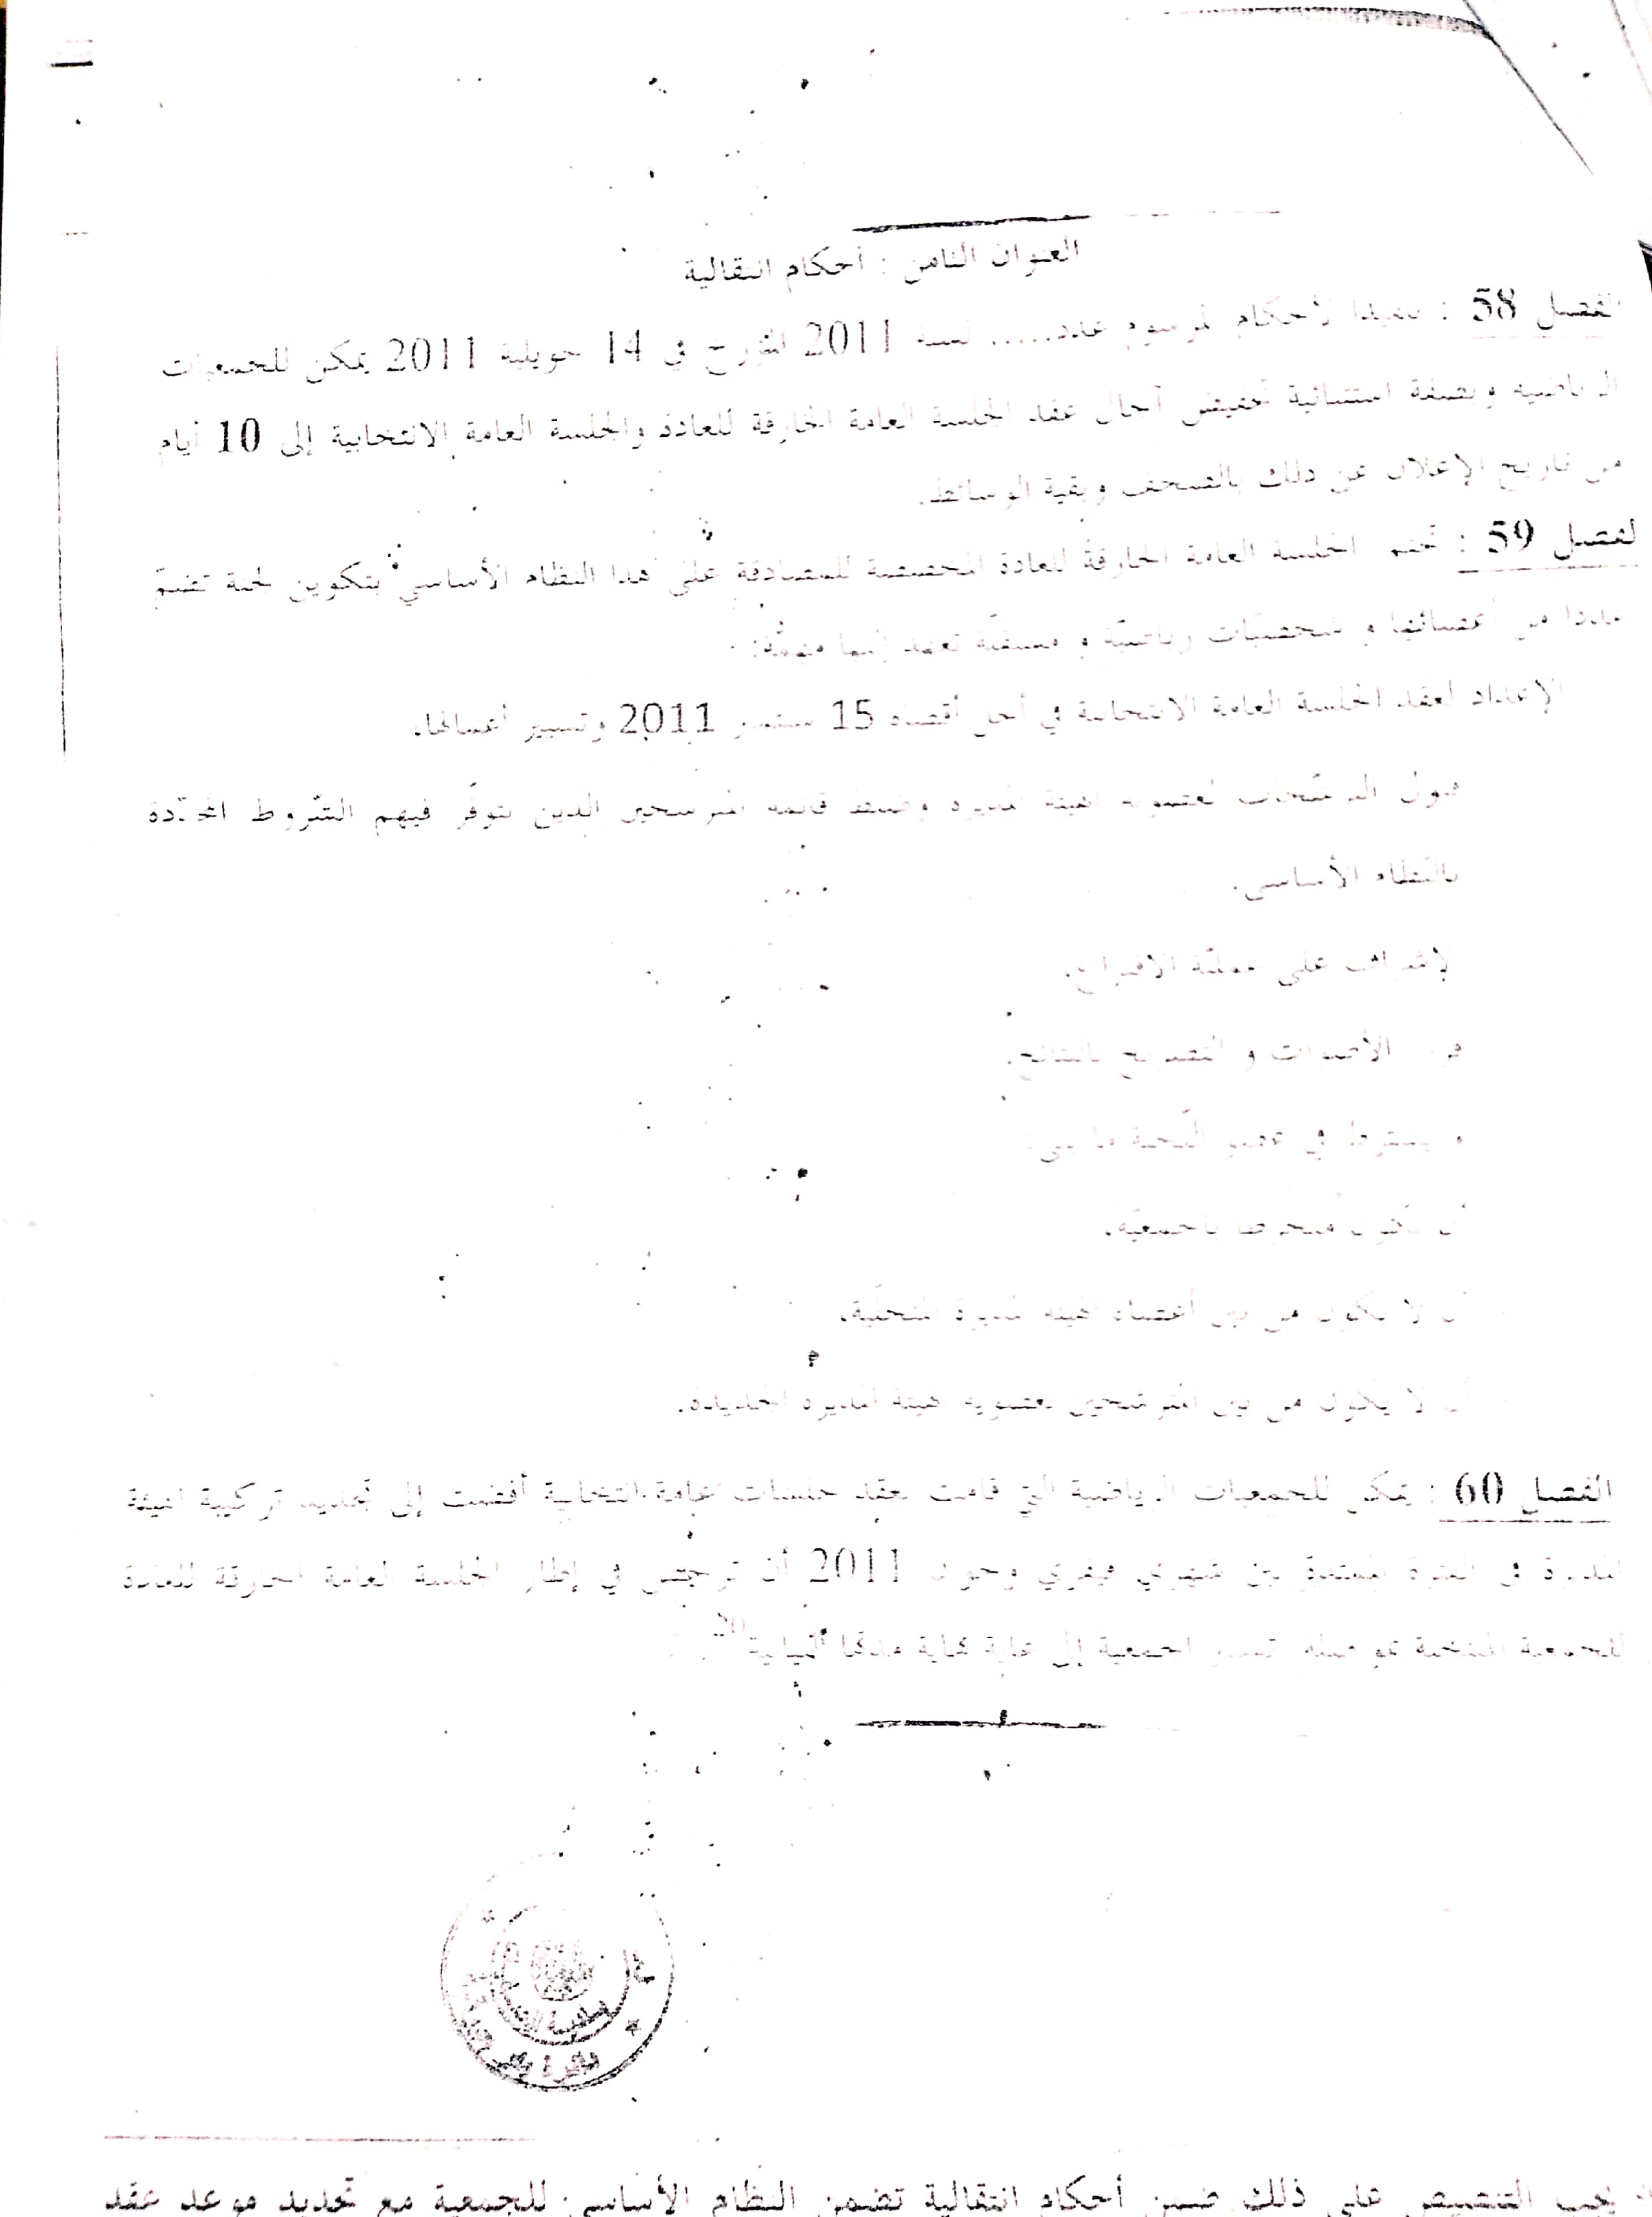 العنوان الثامن : أحكام انتقالية
الفصل 58 : تنفيذا لأحكام المرسوم عدد..... لسنة 2011 المؤرخ في 14 جويلية 2011 يمكن للجمعيات
الرياضية وبصفة استثنائية تخفيض آجال عقد الجلسة العامة الخارقة للعادة والجلسة العامة الانتخابية إلى 10 أيام
من تاريخ الإعلان عن ذلك بالصحف وبقية الوسائط.
الفصل 59 : تختم الجلسة العامة الخارقة للعادة المخصصة للمصادقة على هذا النظام الأساسي بتكوين لجنة تضمّ
عددا من أعضائها و شخصيّات رياضيّة و مستقلّة تعهد إليها مهمّة:
الإعداد لعقد الجلسة العامة الانتخابية في أجل أقصاه 15 سبتمبر 2011 وتسيير أعمالها.
قبول الترشّحات لعضوية الهيئة المديرة وضبط قائمة المترشحين الذين تتوفّر فيهم الشّروط المحدّدة
بالنّظام الأساسي.
الإشراف على عمليّة الاقتراع.
فرز الأصوات و التصريح بالنتائج.
و يشترط في عضو اللّجنة ما يلي:
أن يكون منخرطا بالجمعيّة.
أن لا يكون من بين أعضاء الهيئة المديرة المتخلّية.
أن لا يكون من بين المترشحين لعضوية الهيئة المديرة الجديدة.
الفصل 60 : يمكن للجمعيات الرياضية التي قامت بعقد جلسات عامة انتخابية أفضت إلى تجديد تركيبة الهيئة
المديرة في الفترة الممتدة بين شهري فيفري وجوان 2011 أن ترخص في إطار الجلسة العامة الخارقة للعادة
للجمعية المنتخبة تسيير الجمعية إلى غاية نهاية مدتها النيابية
يجب التنصيص على ذلك ضمن أحكام انتقالية تضمن النظام الأساسي للجمعية مع تحديد موعد عقد